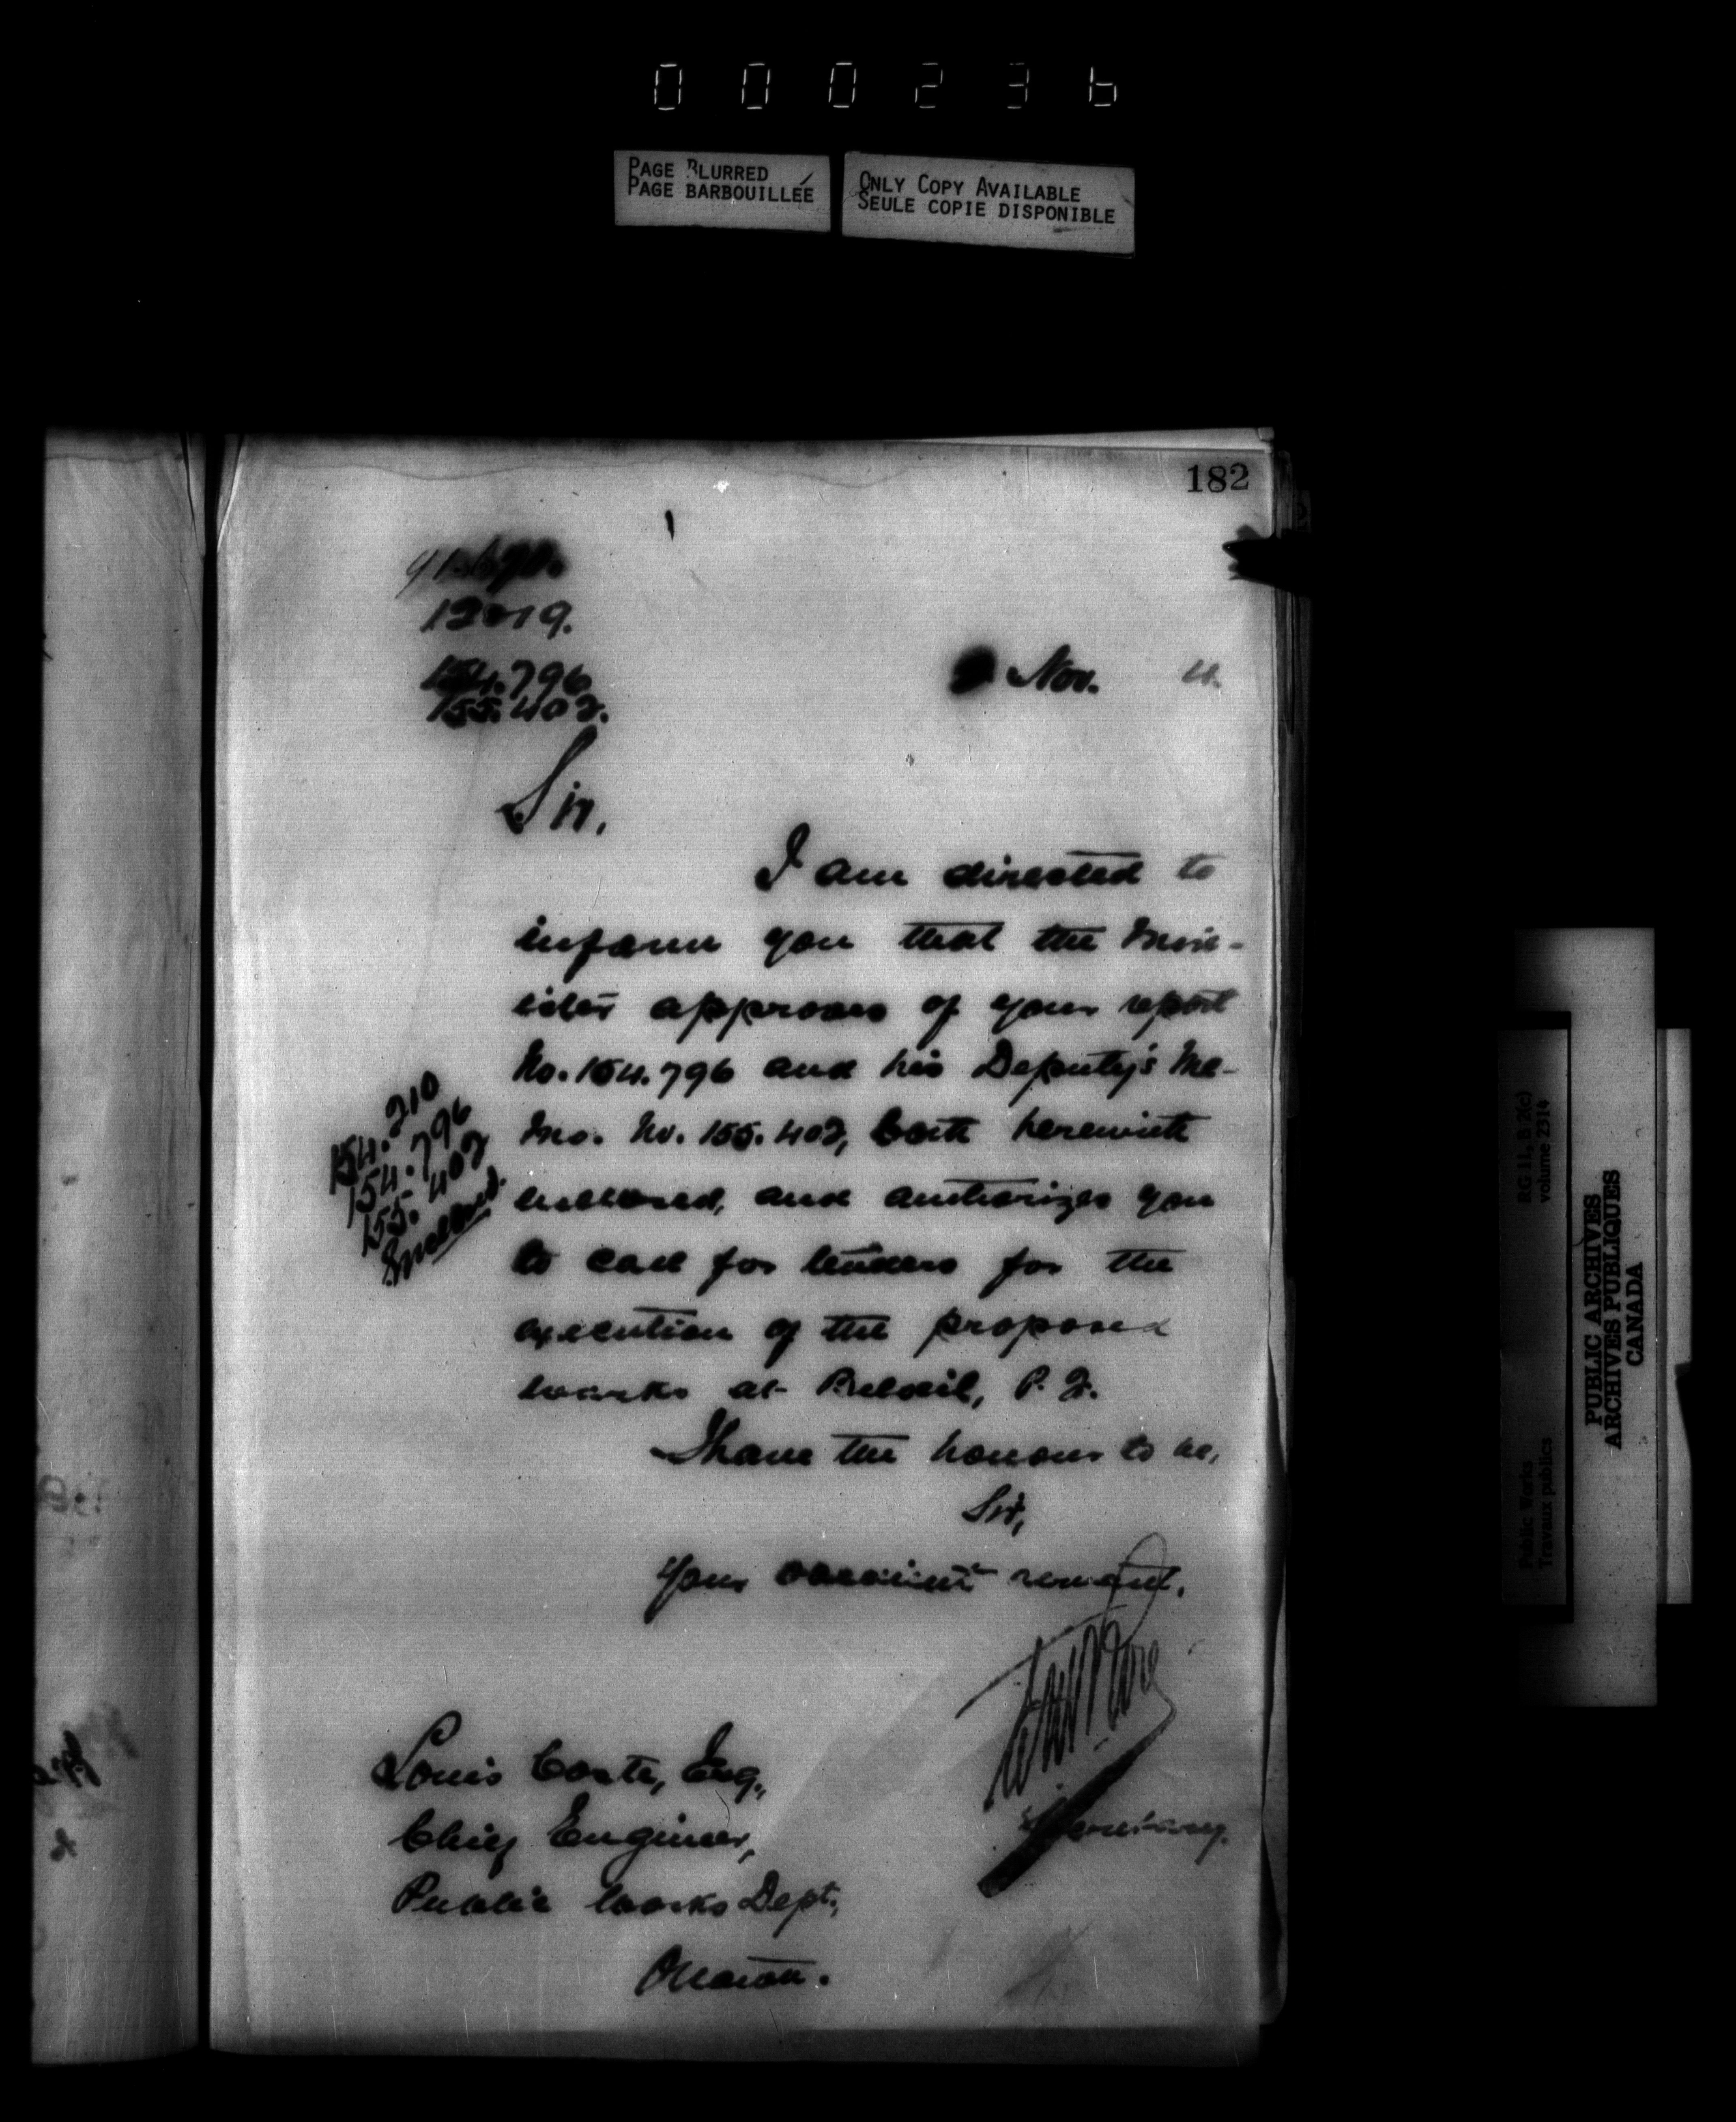 000236
PAGE BLURRED
PAGE BARBOUILLÉE
ONLY COPY AVAILABLE
SEULE COPIE DISPONIBLE
182
12019.
154.796
155.402.
Nov.
Sir,
I am directed to
inform you that the Min-
ister approves of your report
No. 154.796 and his Deputy's Me-
mo. No. 155.402, both herewith
enclosed, and authorizes you
to call for tenders for the
execution of the proposed
works at Belœil, P. Q.
I have the honour to be,
Sir,
Your obedient servant,
Secretary.
154.210
154.796
155.402
Enclosed.
Louis Coste, Esq.,
Chief Engineer,
Public Works Dept.,
Ottawa.
RG 11, B 2(c)
volume 2314
Public Works
Travaux publics
PUBLIC ARCHIVES
ARCHIVES PUBLIQUES
CANADA